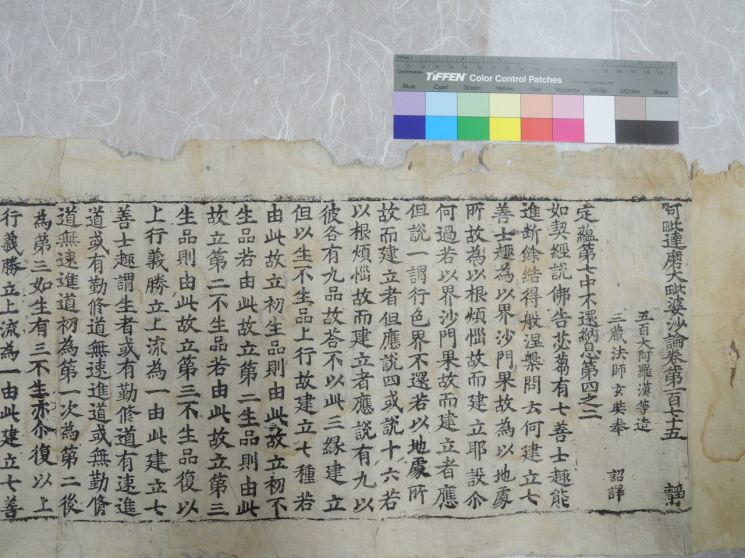 Inches
Centimetres
TIFFEN Color Control Patches
Blue Cyan Green Yellow Red Magenta White 3/Color Black
阿毗達磨大毗婆沙論卷第一百七十五
五百大阿羅漢等造
三藏法師玄奘奉 詔譯
定蘊第七中不還納息第四之二
如契經說佛告苾芻有七善士趣能
進斷餘結得般涅槃問云何建立七
善士趣為以界沙門果故為以地處
所故為以根煩惱故而建立耶設尒
何過若以界沙門果故而建立者應
但說一謂行色界不還若以地處所
故而建立者但應說四或說十六若
以根煩惱故而建立者應說有九以
彼各有九品故荅不以此三緣建立
但以生不生品上行故建立七種若
由此故立初生品則由此故立初不
生品若由此故立第二生品則由此
故立第二不生品若由此故立第三
生品則由此故立第三不生品復以
上行義勝立上流為一由此建立七
善士趣謂生者或有勤修道有速進
道或有勤修道無速進道或無勤脩
道無速進道初為第一次為第二後
為第三如生有三不生亦尒復以上
行義勝立上流為一由此建立七善